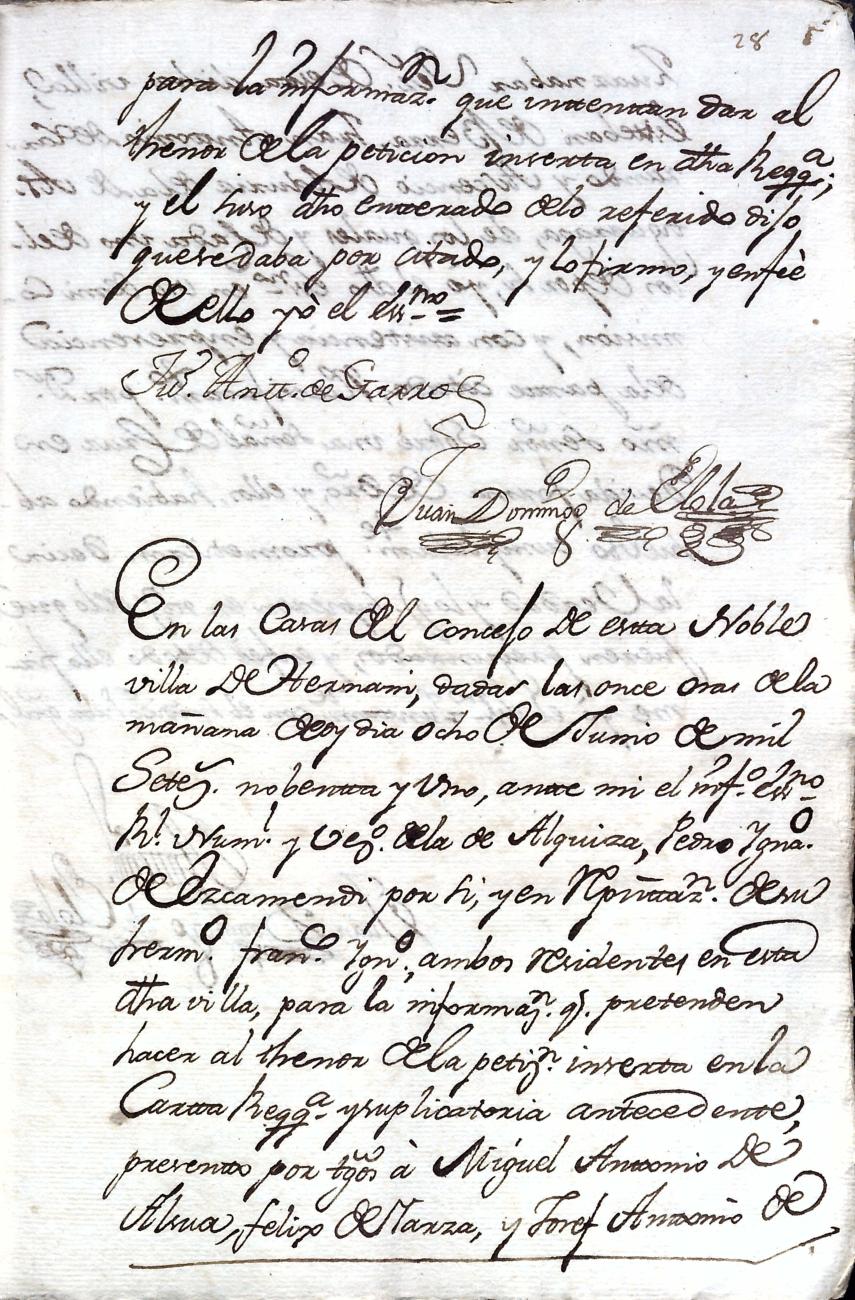 28
para la informazn. que intentan dar al
thenor de la peticion inserta en dha Reqqa,
y el suso dho enterado delo referido dijo
quesedaba por citado, y lo firmo, y enfeè
de ello yò el essno =
Antto. de Garro
Juan Domingo de Elola
En las Casas del concejo de esta Noble
villa de Hernani, dadas las once oras de la
mañana de oy dia ocho de Junio de mil
Setez. nobentta y Uno, ante mi el info. essno
Rl. Numl. y Vezo. dela de Alquiza, Pedro Ygnao.
de Ezcamendi por si, y en Rpñttazn. de su
hermo. franco. Ygno., ambos residentes en esta
dha villa, para la informazn. q. pretenden
hacer al thenor de la petizn. inserta en la
Cartta Reqqa. y suplicatoria antecedente,
presento por tgos à Miguel Antonio De
Alsua, felix de Yarza, y Josef Antonio de